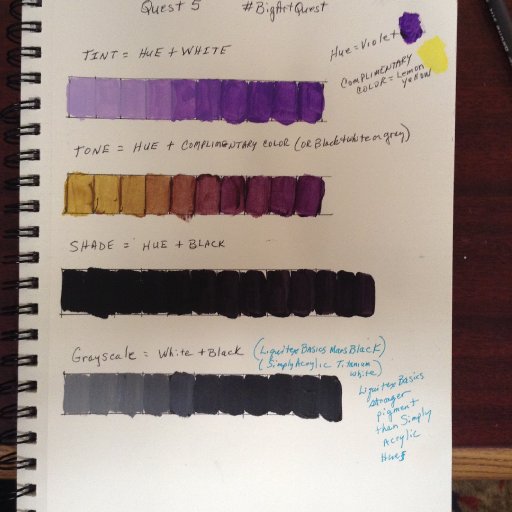 Quest 5 #BigArtQuest
Hue = Violet
TINT = HUE + WHITE
COMPLIMENTARY
COLOR = Lemon
Yellow
TONE = HUE + COMPLIMENTARY COLOR (OR Black + white or gray)
SHADE = HUE + BLACK
Grayscale = White + Black (Liquitex Basics Mars Black)
(Simply Acrylic Titanium
White)
Liquitex Basics
stronger
pigment
than Simply
Acrylic
Hues